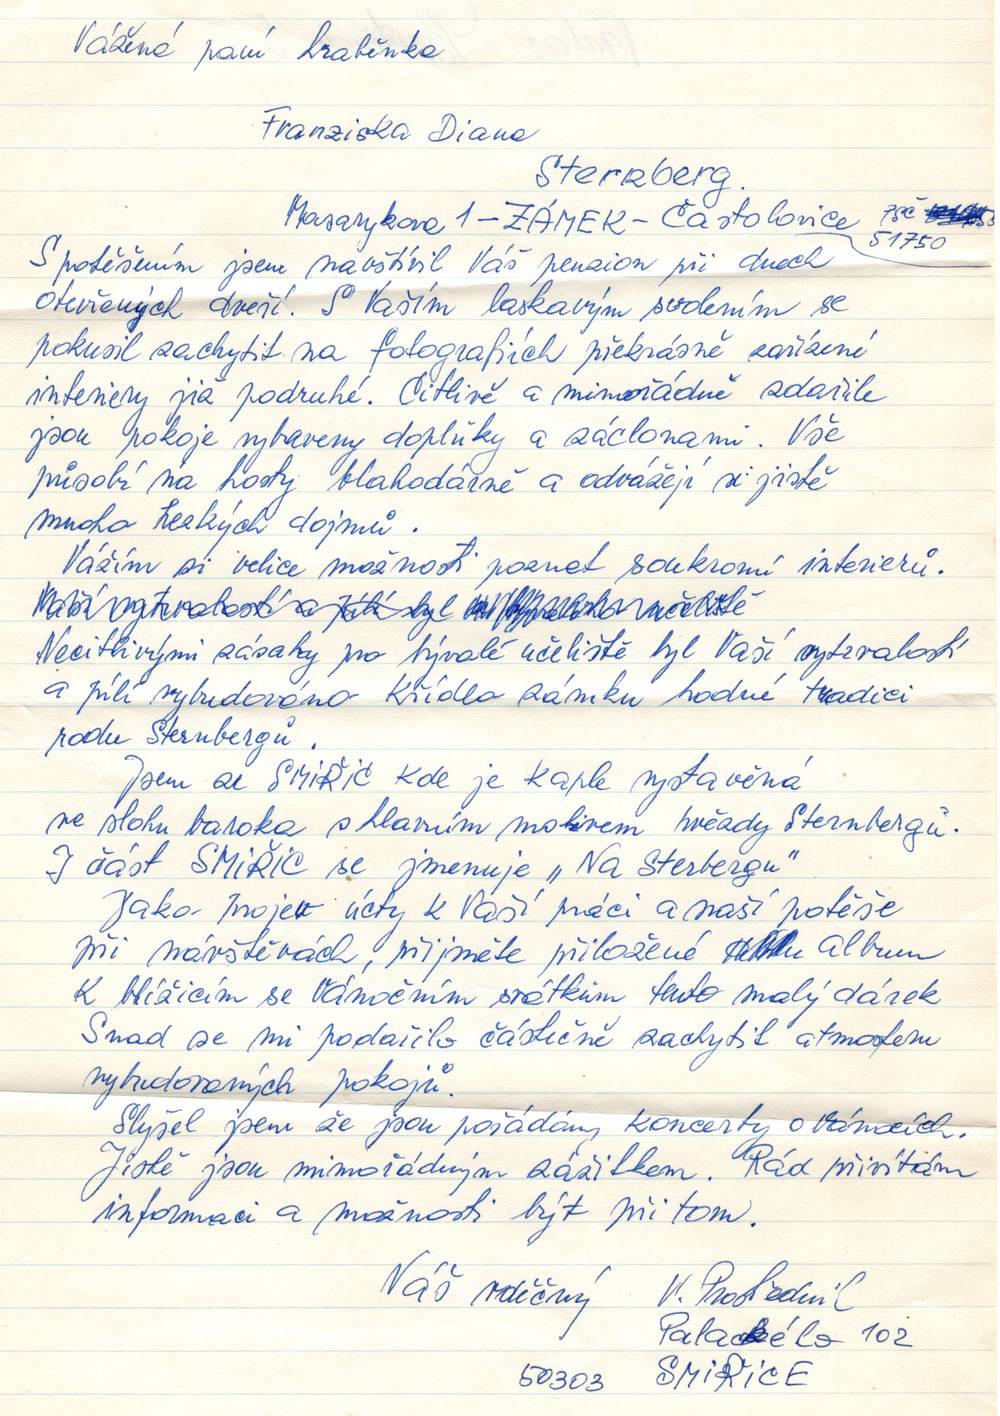 Vážená paní hraběnka
Franziska Diana
Sternberg.
Masarykova 1 - ZÁMEK - Častolovice PSČ
51750
S potěšením jsem navštívil Váš penzion při dnech
otevřených dveří. S Vaším laskavým svolením se
pokusil zachytit na fotografiích překrásně zařízené
interiery již podruhé. Citlivě a mimořádně zdařile
jsou pokoje vybaveny doplňky a záclonami. Vše
působí na hosty blahodárně a odvážejí si jistě
mnoho hezkých dojmů.
Vážím si velice možnosti poznat soukromí interierů.
Vaší vytrvalostí a pílí byl učeliště
Necitlivými zásahy pro bývalé učeliště byl Vaší vytrvalostí
a pílí vybudováno křídlo zámku hodné tradici
rodu Sternbergů.
Jsem ze SMIŘIC kde je kaple vystavěná
ve slohu baroka s hlavním motivem hvězdy Sternbergů.
I část SMIŘIC se jmenuje „Na Sterbergu"
Jako projev úcty k Vaší práci a naší potěše
při návštěvách, přijměte přiložené album
K blížícím se Vánočním svátkům tento malý dárek
Snad se mi podařilo částečně zachytit atmosferu
vybudovaných pokojů.
Slyšel jsem že jsou pořádány koncerty o vánocích.
Jistě jsou mimořádným zážitkem. Rád přivítám
informaci a možnosti být při tom.
Váš vděčný V. Prostředník
Palackého 102
50303 SMIŘICE